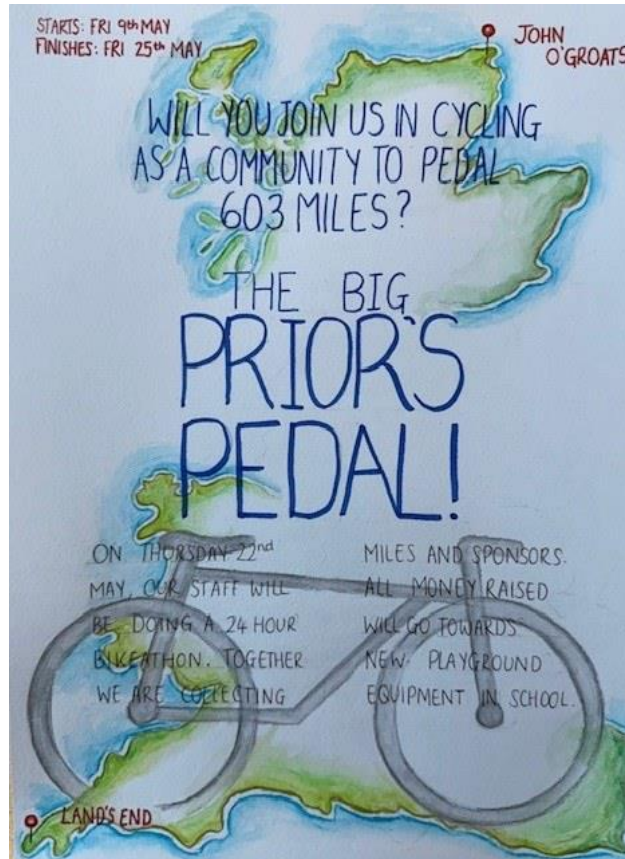 STARTS: FRI 9th MAY
FINISHES: FRI 25th MAY
JOHN
O'GROATS
WILL YOU JOIN US IN CYCLING
AS A COMMUNITY TO PEDAL
603 MILES?
THE BIG
PRIOR'S
PEDAL!
ON THURSDAY 22nd
MAY, OUR STAFF WILL
BE DOING A 24 HOUR
BIKEATHON. TOGETHER
WE ARE COLLECTING
MILES AND SPONSORS.
ALL MONEY RAISED
WILL GO TOWARDS
NEW PLAYGROUND
EQUIPMENT IN SCHOOL.
LAND'S END